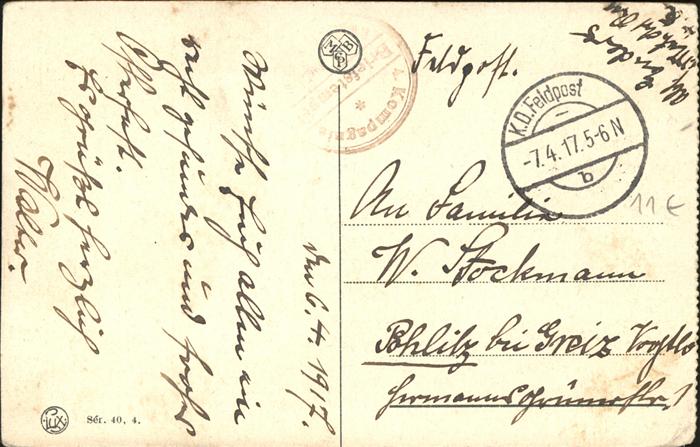 den 6.4.1917.
Wünsche Euch allen ein
recht gesundes und frohes
Osterfest.
Es grüßt herzlich
Walter.
MSiB
Feldpost.
Kompagnie
K.D. Feldpost
-7.4.17.5-6N
b
11€
An Familie
W. Stockmann
Pohlitz bei Greiz Vogtl.
Hermannsgrünerstr. 1
LUX
Sér. 40, 4.